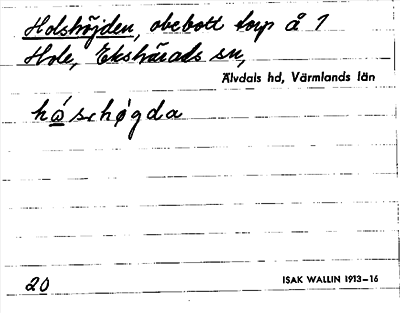 Holshöjden, obebott torp å 1
Hole, Ekshärads sn,
Älvdals hd, Värmlands län
håschøgda
20
ISAK WALLIN 1913–16